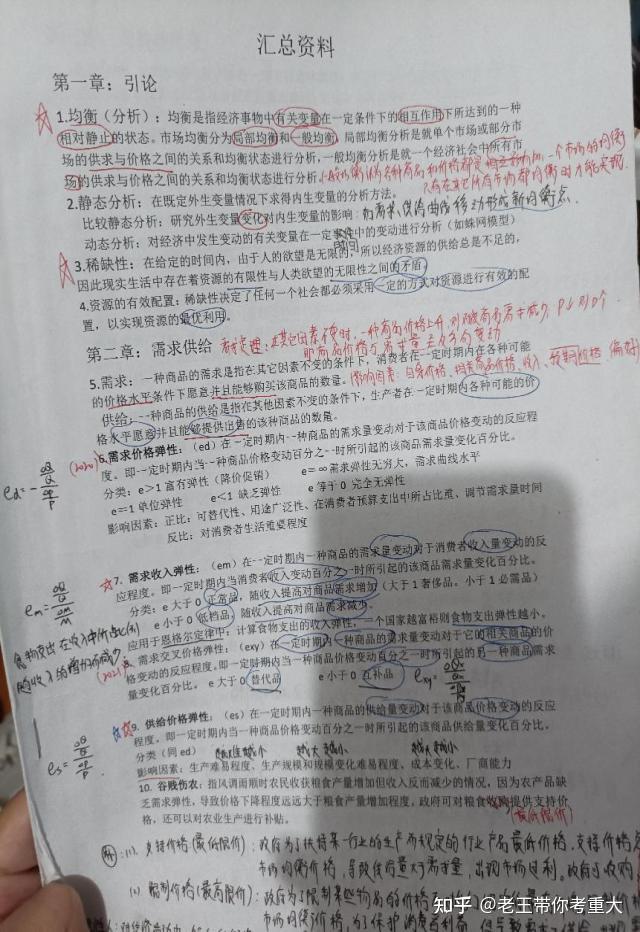 汇总资料
第一章：引论
1.均衡（分析）：均衡是指经济事物中有关变量在一定条件下的相互作用下所达到的一种
相对静止的状态。市场均衡分为局部均衡和一般均衡，局部均衡分析是就单个市场或部分市
场的供求与价格之间的关系和均衡状态进行分析，一般均衡分析是就一个经济社会中所有市
场的供求与价格之间的关系和均衡状态进行分析。
一个市场的均衡
只有在其它所有市场都均衡时才能实现.
2.静态分析：在既定外生变量情况下求得内生变量的分析方法。
比较静态分析：研究外生变量变化对内生变量的影响：如需求、供给曲线移动形成新均衡点.
动态分析：对经济中发生变动的有关变量在一定时间中的变动进行分析（如蛛网模型）
3.稀缺性：在给定的时间内，由于人的欲望是无限的，所以经济资源的供给总是不足的，
因此现实生活中存在着资源的有限性与人类欲望的无限性之间的矛盾。
4.资源的有效配置：稀缺性决定了任何一个社会都必须采用一定的方式对资源进行有效的配
置，以实现资源的最优利用。
第二章：需求供给
需求定理：在其它因素不变时，一种商品价格上升，则
即商品价格与需求量呈反方向变动
5.需求：一种商品的需求是指在其它因素不变的条件下，消费者在一定时期内在各种可能
的价格水平条件下愿意并且能够购买该商品的数量。
(影响因素：自身价格、相关商品价格、收入、预期价格（偏好）
供给：一种商品的供给是指在其他因素不变的条件下，生产者在一定时期内各种可能的价
格水平愿意并且能够提供出售的该种商品的数量。
(2020)
6.需求价格弹性：（ed）在一定时期内一种商品的需求量变动对于该商品价格变动的反应程
度。即一定时期内当一种商品价格变动百分之一时所引起的该商品需求量变化百分比。
分类：e＞1 富有弹性（降价促销） e=∞需求弹性无穷大，需求曲线水平
e=1 单位弹性 e<1 缺乏弹性 e 等于 0 完全无弹性
影响因素：正比：可替代性、用途广泛性、在消费者预算支出中所占比重、调节需求量时间
反比：对消费者生活重要程度
7. 需求收入弹性：（em）在一定时期内一种商品的需求量变动对于消费者收入量变动的反
应程度。即一定时期内当消费者收入变动百分之一时所引起的该商品需求量变化百分比。
分类：e 大于 0 正常品，随收入提高对商品需求增加（大于 1 奢侈品。小于 1 必需品）
e 小于 0 低档品，随收入提高对商品需求减少。
应用于恩格尔定律中：计算食物支出的收入弹性，一个国家越富裕则食物支出弹性越小。
食物支出在收入中所占比例
随收入的增加而减少.
(2021)
8. 需求交叉价格弹性：（exy）在一定时期内一种商品的需求量变动对于它的相关商品的价
格变动的反应程度。即一定时期内当一种商品价格变动百分之一时所引起的另一种商品需求
量变化百分比。 e 大于 0 替代品 e 小于 0 互补品
9. 供给价格弹性：（es）在一定时期内一种商品的供给量变动对于该商品价格变动的反应
程度。即一定时期内当一种商品价格变动百分之一时所引起的该商品供给量变化百分比。
分类（同 ed） 越难越小 越大越小 越大越小
影响因素：生产难易程度、生产规模和规模变化难易程度、成本变化、厂商能力
10. 谷贱伤农：指风调雨顺时农民收获粮食产量增加但收入反而减少的情况，因为农产品缺
乏需求弹性，导致价格下降程度远远大于粮食产量增加程度。政府可对粮食收购提供支持价
格，还可以对农业生产进行补贴。
(最低限价)
(1). 支持价格(最低限价)：政府为了扶持某一行业的生产而规定的行业产品最低价格，支持价格
市场均衡价格，导致供给量大于需求量，出现市场过剩。政府可收购
(2) 限制价格(最高限价)：政府为了限制某些物品的价格
市场均衡价格，为了保护消费者利益
知乎 @老王带你考重大